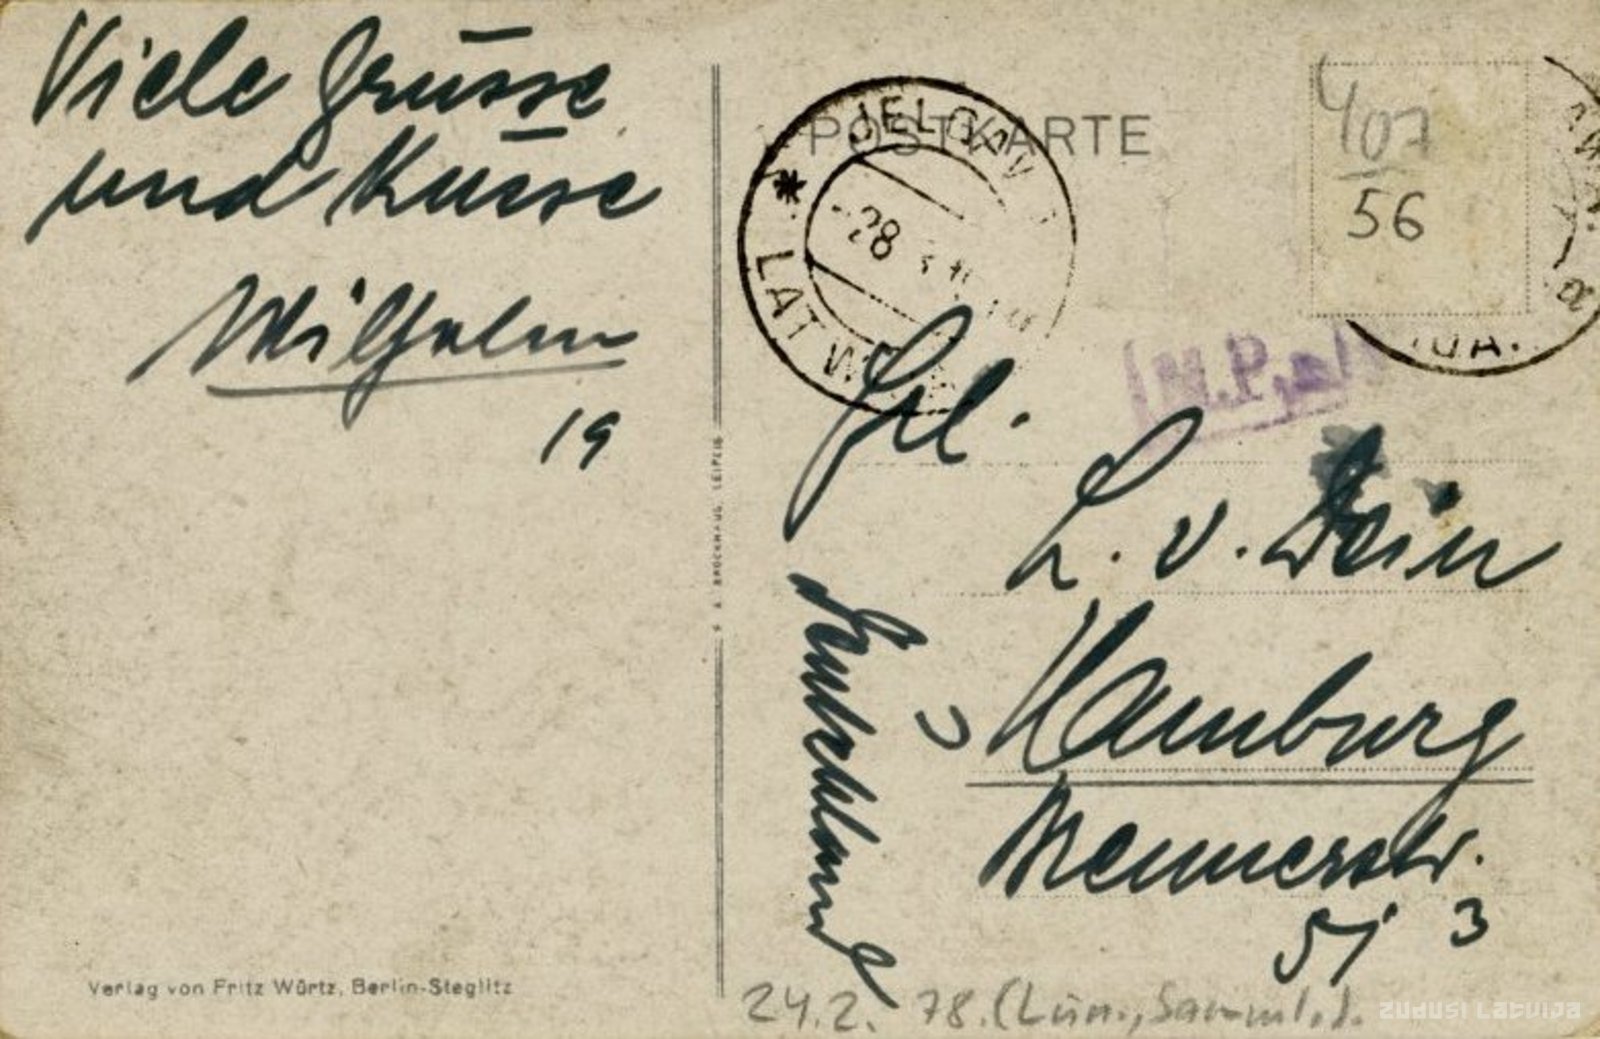 Viele Grüsse
und Küsse
Wilhelm
19
Verlag von Fritz Würtz, Berlin-Steglitz
F. A. BROCKHAUS, LEIPZIG
POSTKARTE
JELGAV
LATWIJA
28
407
56
M.P.
Frl.
L. v. Dein
Hamburg
51 3
Deutschland
24.2.78. (Lün., Samml.).
ZUDUSI LATVIJA